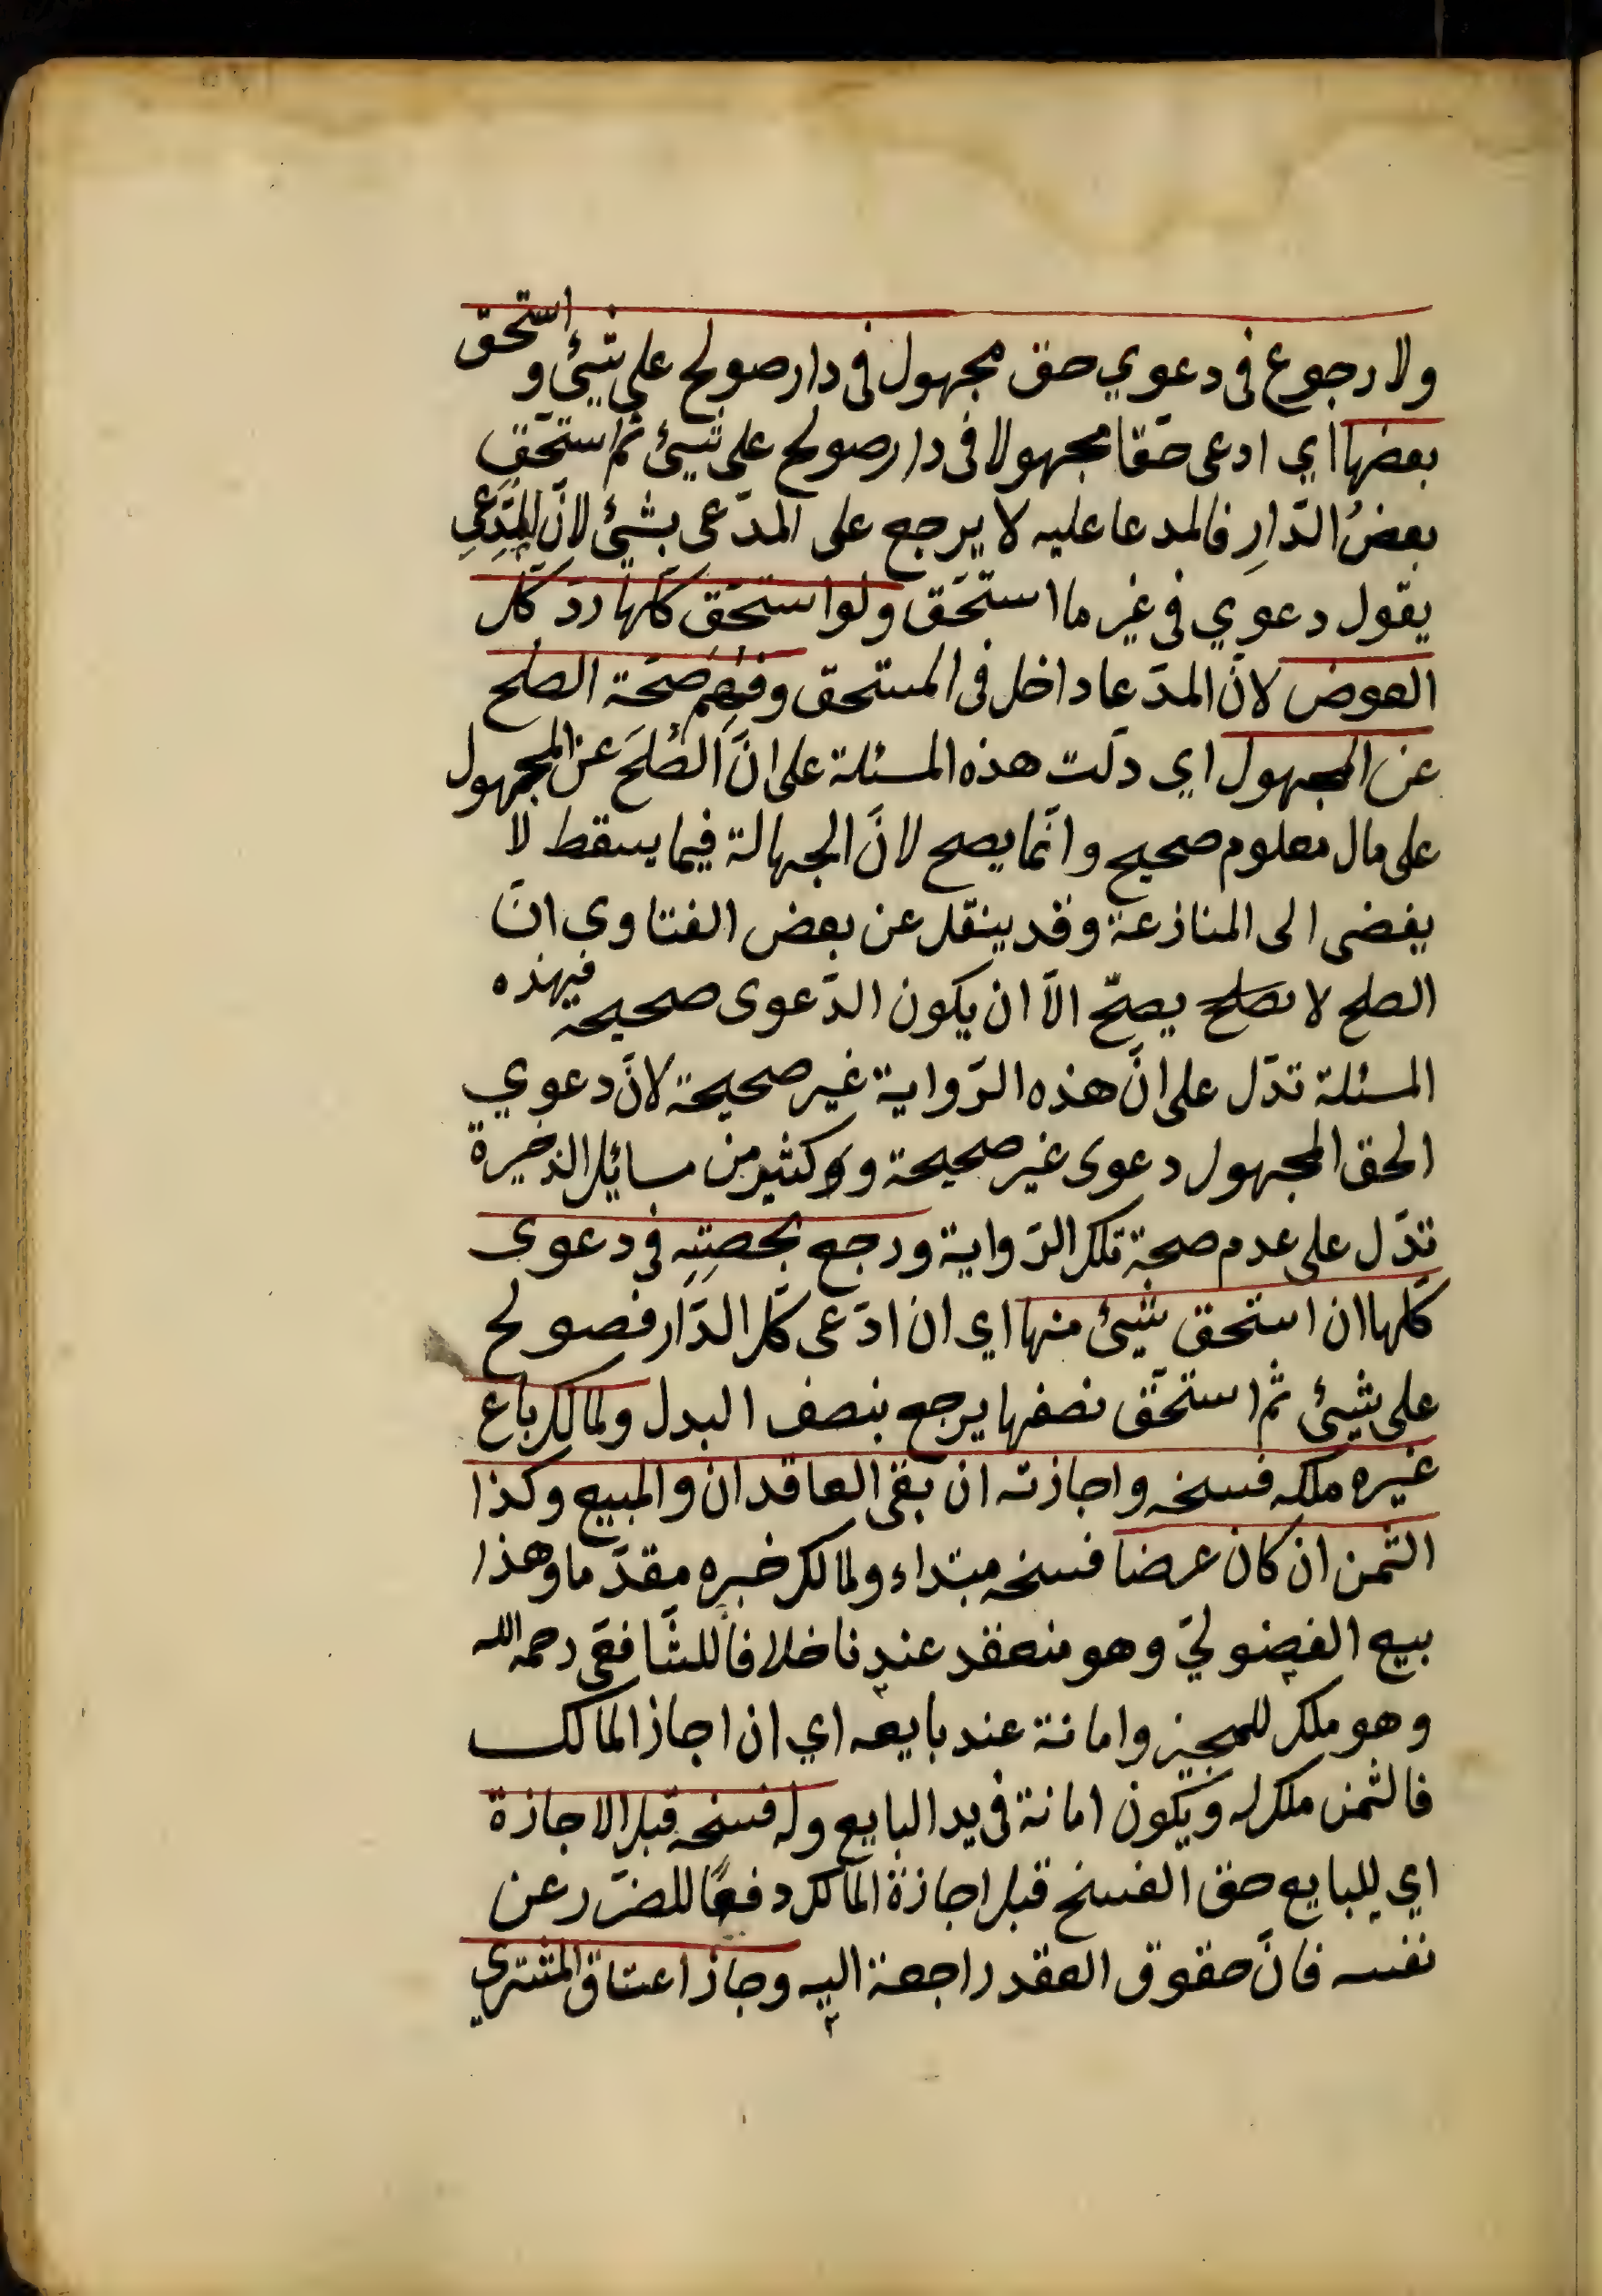 ولا رجوع فى دعوي حق مجهول فى دار صولح على شيئ و استحق
بعضها اي ادعى حقّا مجهولا فى دار صولح على شيئ ثم استحقّ
بعضُ الدّارِ فالمدعا عليه لا يرجع على المدّعى بشيئ لانّ للمدّعىِ
يقول دعوي فى غير ما استحقّ ولو استحقّ كلّها ردّ كلّ
العوض لانّ المدّعا داخل فى المستحق وفهم صحّة الصلح
عن المجهول اي دلّت هذه المسئلة على انّ الصُلحَ عن المجهول
على مال معلوم صحيح وانّما يصح لانّ الجهالة فيما يسقط لا
يفضى الى المنازعة وقد ينقل عن بعض الفتاوى انّ
الصلح لا يصلح يصحّ الاّ ان يكون الدّعوى صحيحة فهذه
المسئلة تدلّ على انّ هذه الرّواية غير صحيحة لانّ دعوي
الحق المجهول دعوى غير صحيحة و وكثير من مسائل الذخيرة
تدّل على عدم صحة تلك الرّواية ورجع بحصتِهِ فى دعوى
كلّها ان استحق شيئ منها اى ان ادّعى كلّ الدّار فصولح
على شيئ ثم استحّق نصفها يرجع بنصف البدل ولمالك باع
غيره ملكه فسخه واجازته ان بقى العاقدان والمبيع وكذا
الثمن ان كان عرضا فسخه مبتداء ولمالك خبره مقدّما وهذا
بيع الفضوليّ وهو منعقد عندنا خلافا للشّافعىّ رحمه الله
وهو ملك للمجيز وامانة عند بايعه اي ان اجاز المالك
فالثمن ملك له ويكون امانة فى يد البايع وله فسخه قبل الاجازة
اي للبايع حق الفسخ قبل اجازة المالك دفعًا للضرّر عن
نفسه فانّ حقوق العقد راجعة اليه وجاز اعتاق المشتري